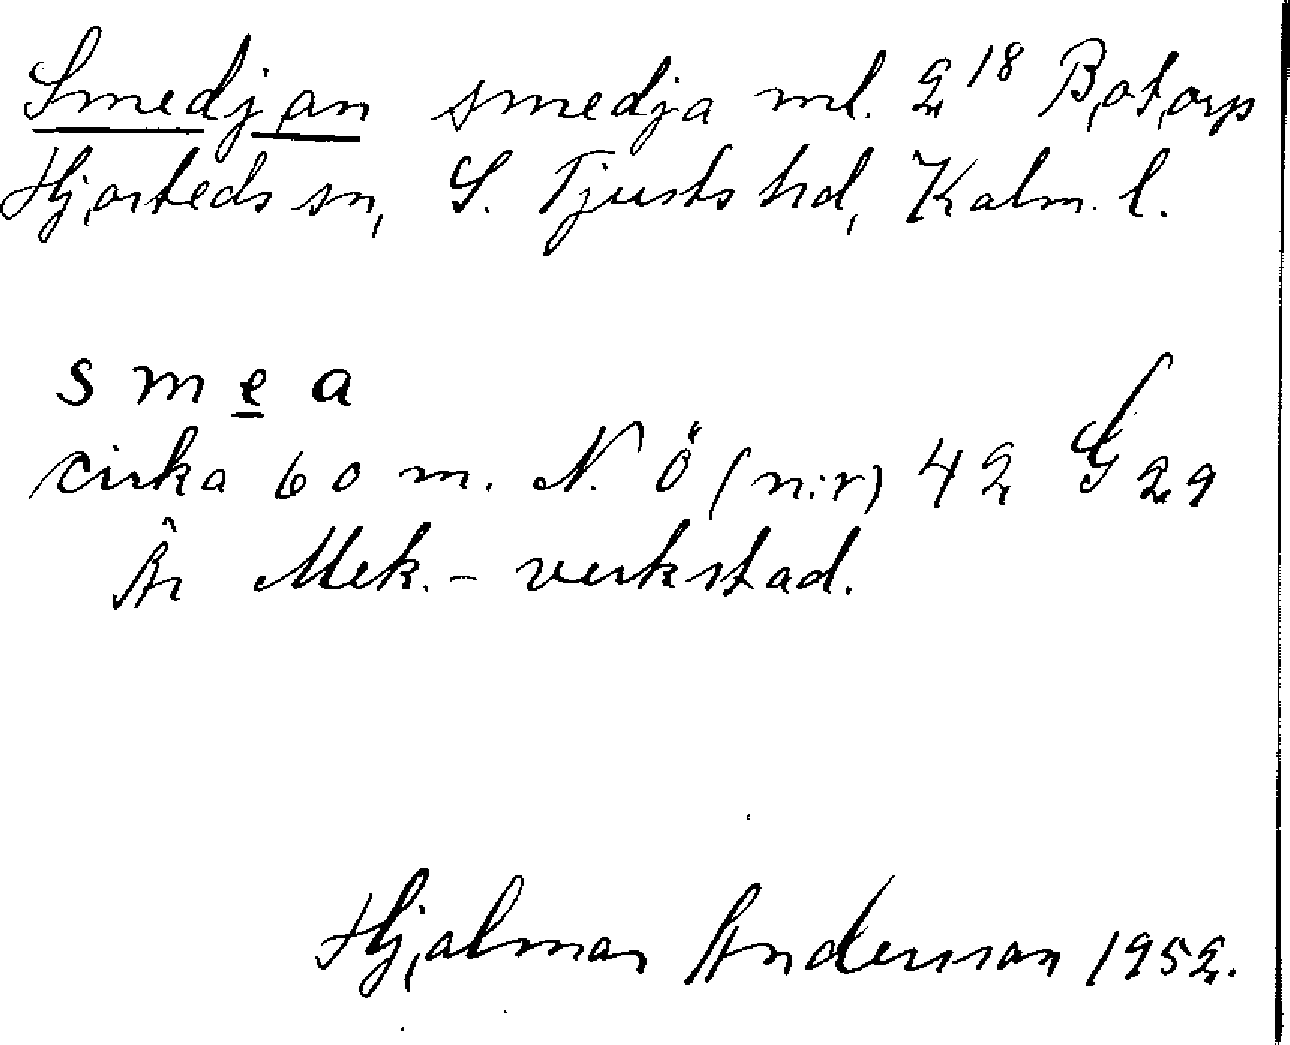 Smedjan smedja ml. 2¹⁸ Botorp
Hjorteds sn, S. Tjusts hd, Kalm. l.
s m e a
cirka 60 m. N. Ö (n:r) 42 G 29
Är Mek.- verkstad.
Hjalmar Anderson 1952.